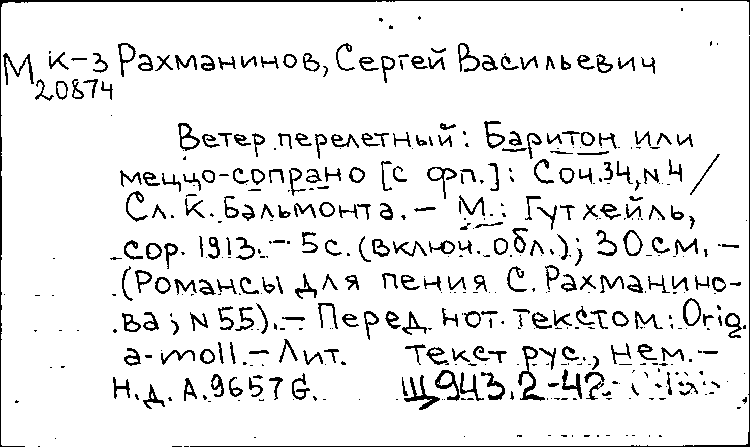 М к-з Рахманинов, Сергей Васильевич
20874
Ветер перелетный: Баритон или
меццо-сопрано [с фп.]: Соч.34, N4 /
Сл. К. Бальмонта. – М.: Гутхейль,
сор. 1913. – 5 с. (включ. обл.); 30 см. –
(Романсы для пения С. Рахманино-
ва; N 55). – Перед нот. текстом: Orig.
a-moll. – Лит. текст рус., нем. –
Н.д. А.9657G. Щ943.2-42